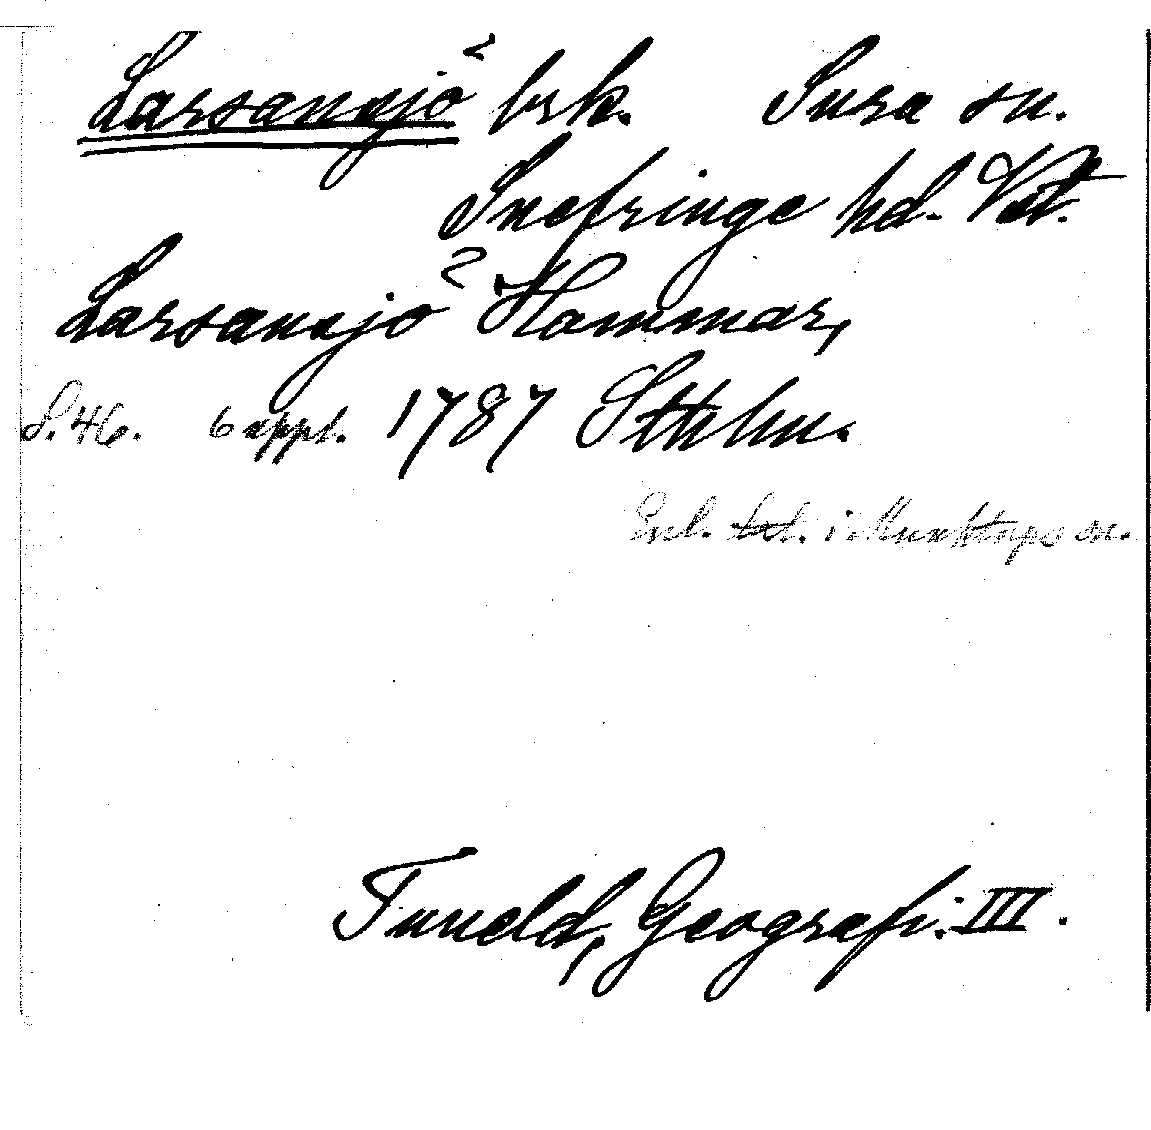 Larsansjö brk. Sura sn.
Snefringe hd. Vstm.
Larsansjö Hammar,
S. 46. 6 uppl. 1787 Sthlm.
Enl. i Munktorps sn.
Tuneld, Geografi. III.